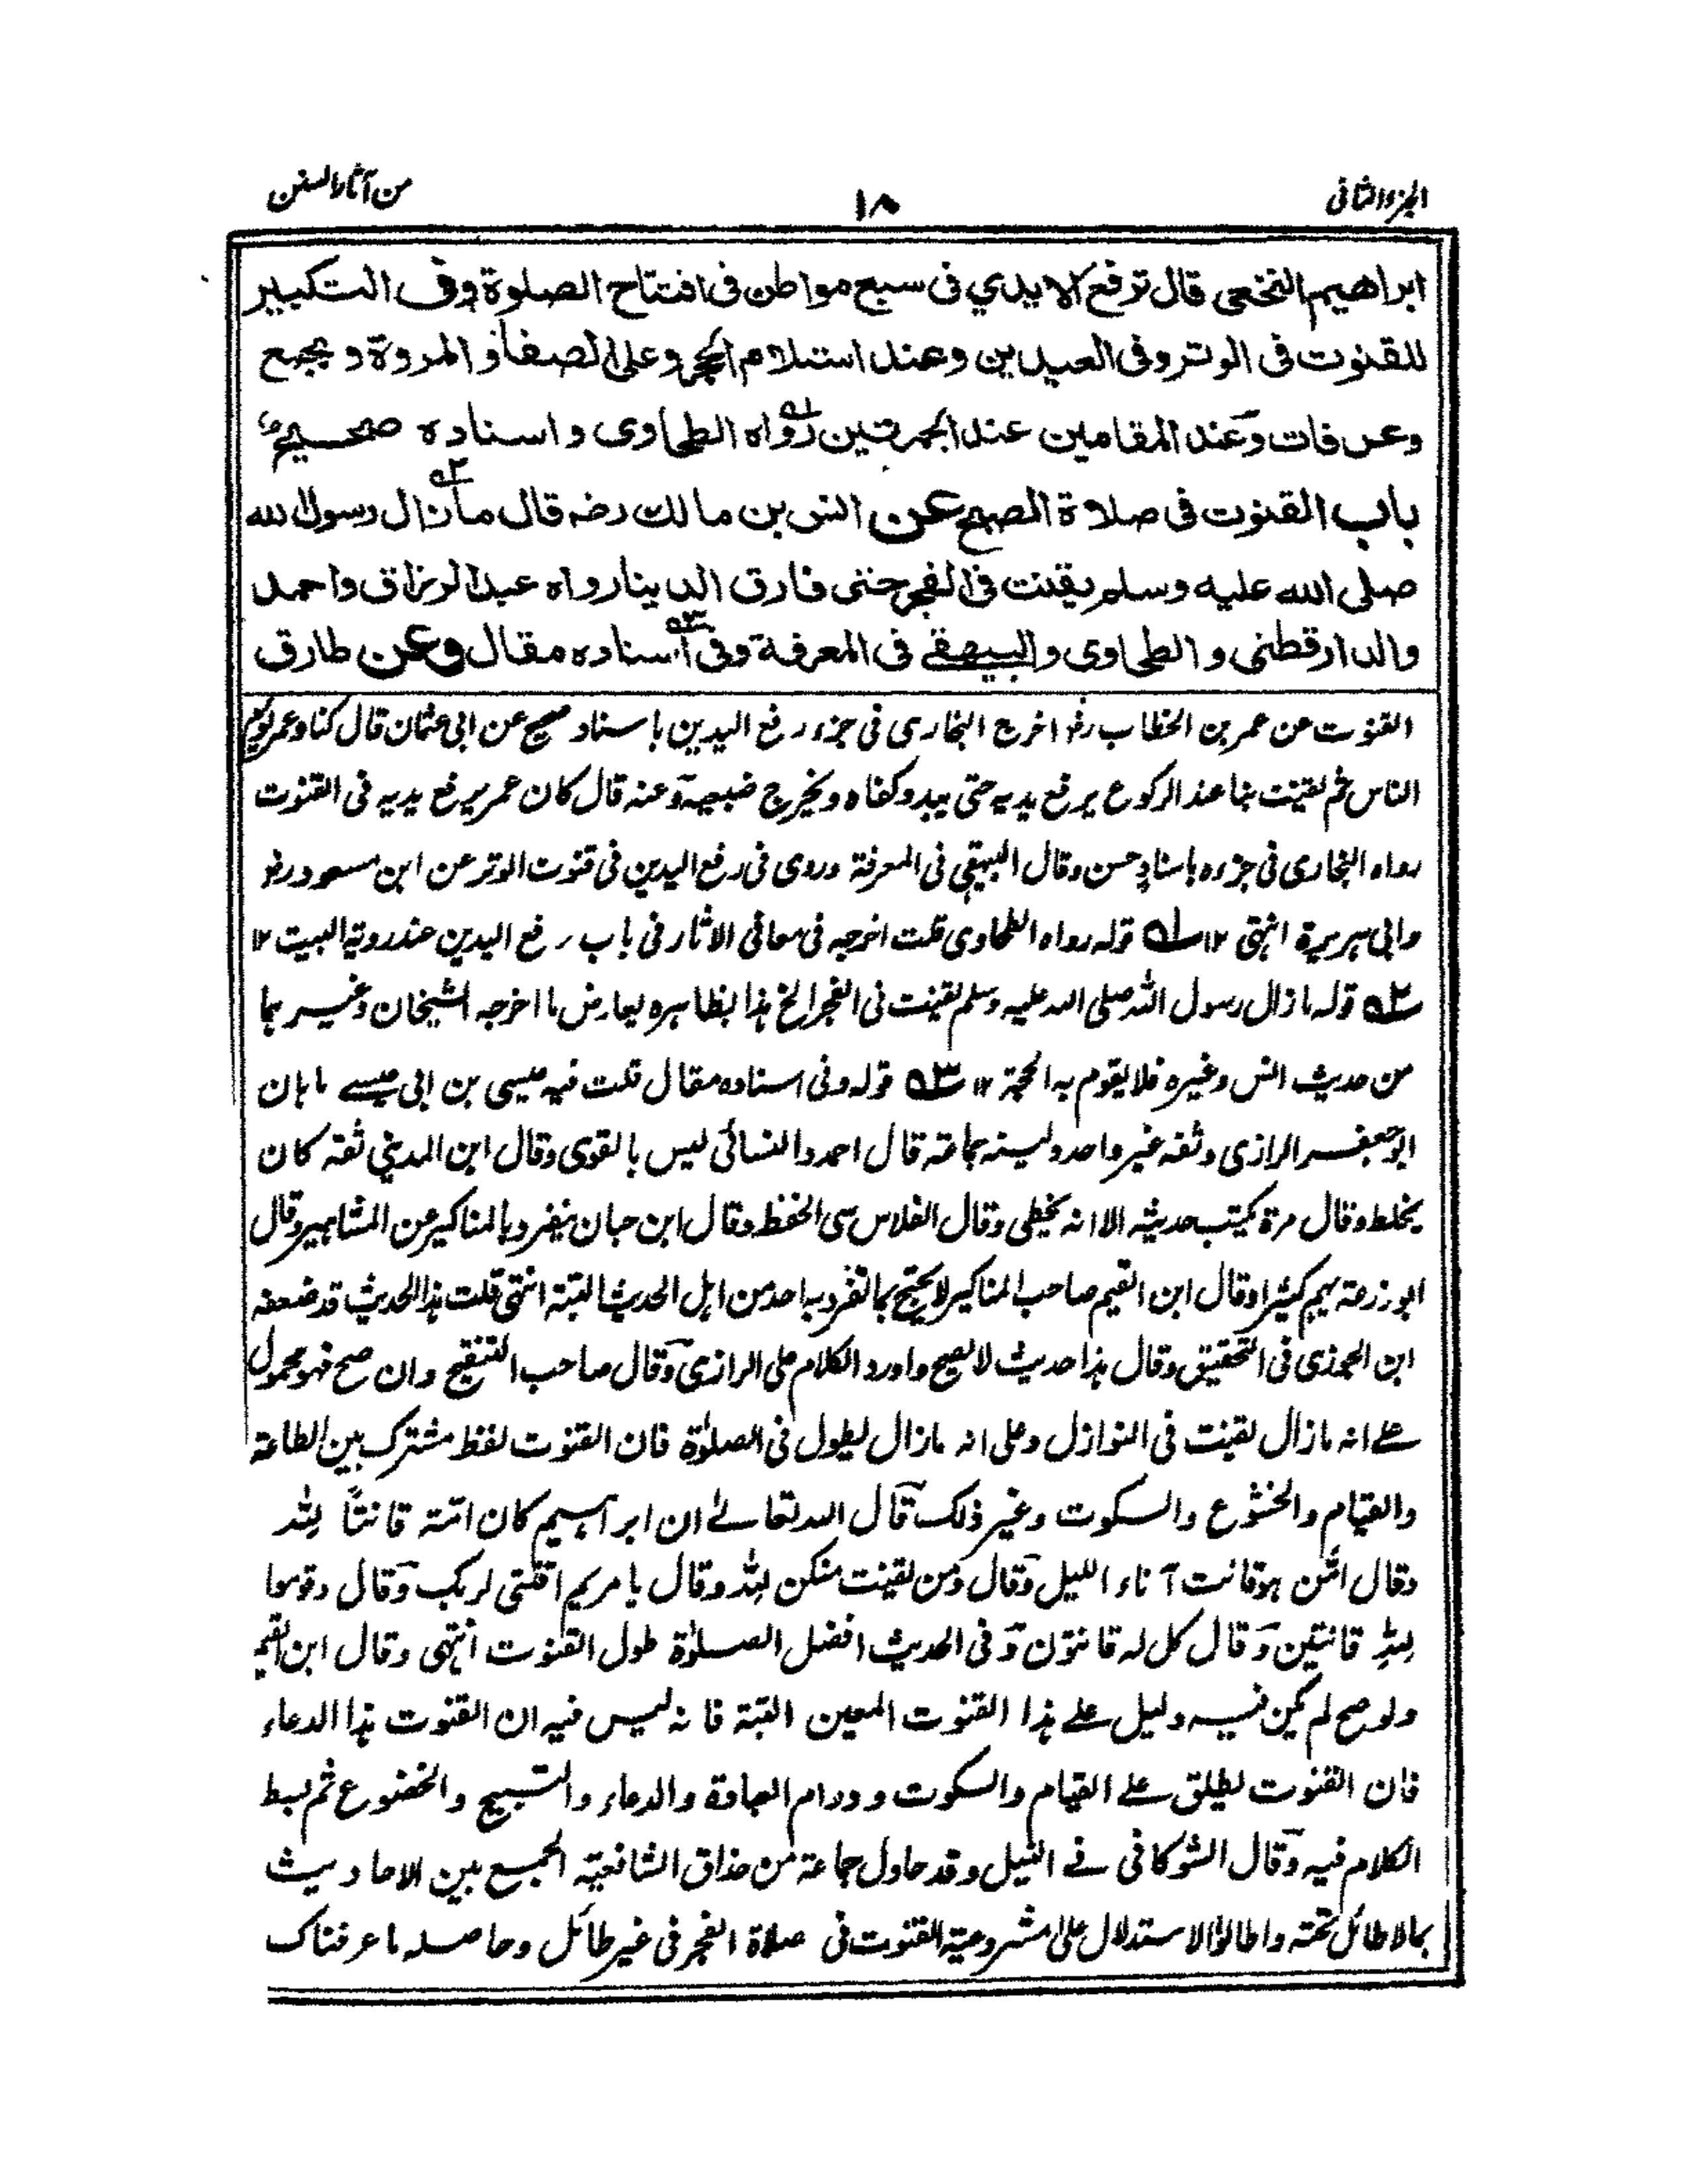 الجزء الثانی
١٨
من آثار السنن
ابراهیم النخعی قال ترفع الایدي فی سبع مواطن فی افتتاح الصلوة وفی التکبیر
للقنوت فی الوتر وفی العیدین وعند استلام الحجر وعلی الصفا و المروة و بجمع
وعرفات وعند المقامین عند الجمرتین رواه الطحاوی و اسناده صحیح
باب القنوت فی صلاة الصبح عن انس بن مالك رضہ قال ما زال رسول الله
صلی الله علیه وسلم یقنت فی الفجر حتی فارق الدنیا رواه عبد الرزاق واحمد
والدارقطنی و الطحاوی و البیهقے فی المعرفة وفی اسناده مقال وعن طارق
القنوت عن عمر بن الخطاب رضہ اخرج البخاری فی جزء رفع الیدین باسناد صحیح عن ابی عثمان قال کنا وعمر یؤم
الناس ثم یقنت بنا عند الرکوع یرفع یدیہ حتی یبدو کفاه ویخرج ضبعیہ وعنہ قال کان عمر یرفع یدیہ فی القنوت
رواه البخاری فی جزءه باسناد حسن وقال البیہقی فی المعرفة وروی فی رفع الیدین فی قنوت الوتر عن ابن مسعود رضہ
وابی ہریرة انتہی ١٢ ١ه قولہ رواه الطحاوی قلت اخرجہ فی معانی الاثار فی باب رفع الیدین عند رویة البیت ١٢
٢ه قولہ ما زال رسول الله صلی الله علیہ وسلم یقنت فی الفجر الخ ہذا بظاہره یعارض ما اخرجہ الشیخان وغیرہما
من حدیث انس وغیره فلا یقوم بہ الحجة ١٢ ٣ه قولہ وفی اسناده مقال قلت فیہ عیسی بن ابی عیسے ماہان
ابو جعفر الرازی وثقہ غیر واحد ولینہ جماعة قال احمد والنسائی لیس بالقوی وقال ابن المدینی ثقہ کان
یخلط وقال مرة یکتب حدیثہ الا انہ یخطی وقال الفلاس سی الحفظ وقال ابن حبان ینفرد بالمناکیر عن المشاہیر وقال
ابو زرعة یہم کثیرا وقال ابن القیم صاحب المناکیر لا یحتج بما تفرد بہ احد من اہل الحدیث البتة انتہی قلت ہذا الحدیث قد ضعفہ
ابن الجوزی فی التحقیق وقال ہذا حدیث لا یصح واورد الکلام علی الرازی وقال صاحب التنقیح وان صح فهو محمول
علے انہ ما زال یقنت فی النوازل وعلی انہ ما زال یطول فی الصلوٰة فان القنوت لفظ مشترک بین الطاعة
والقیام والخشوع والسکوت وغیر ذلک قال الله تعالےٰ ان ابراہیم کان امّة قانتًا لله
وقال امّن ہو قانت آناء اللیل وقال ومن یقنت منکن لله وقال یا مریم اقنتی لربک وقال وقوموا
لله قانتین وقال کل لہ قانتون وفی الحدیث افضل الصلوٰة طول القنوت انتہی وقال ابن القیم
ولو صح لم یکن فیہ دلیل علے ہذا القنوت المعین البتة فانہ لیس فیہ ان القنوت ہذا الدعاء
فان القنوت یطلق علے القیام والسکوت و دوام العبادة والدعاء والتسبیح والخضوع ثم بسط
الکلام فیہ وقال الشوکانی فے النیل وقد حاول جماعة من حذاق الشافعیة الجمع بین الاحادیث
بما لا طائل تحتہ واطالوا الاستدلال علیٰ مشروعیة القنوت فی صلاة الفجر فی غیر طائل وحاصلہ ما عرفناک